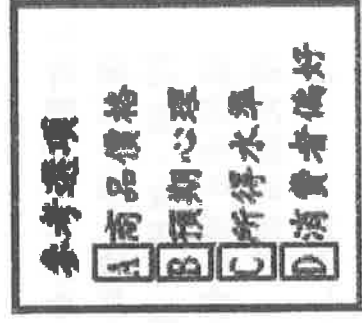 參考選項
A 商品價格
B 預期心理
C 所得水準
D 消費者偏好